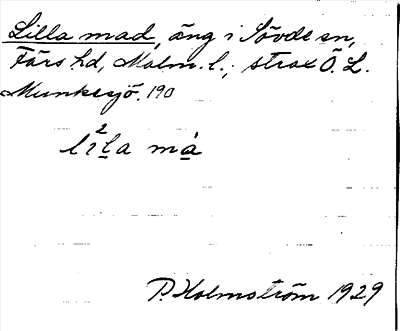 Lilla mad, äng i Sövde sn,
Färs hd, Malm. l.; strax Ö. L.
Munkesjö. 190
li²l̲a má̲
P. Holmström 1929